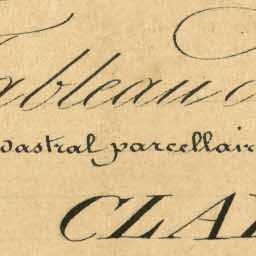 Tableau
cadastral parcellaire
CLA